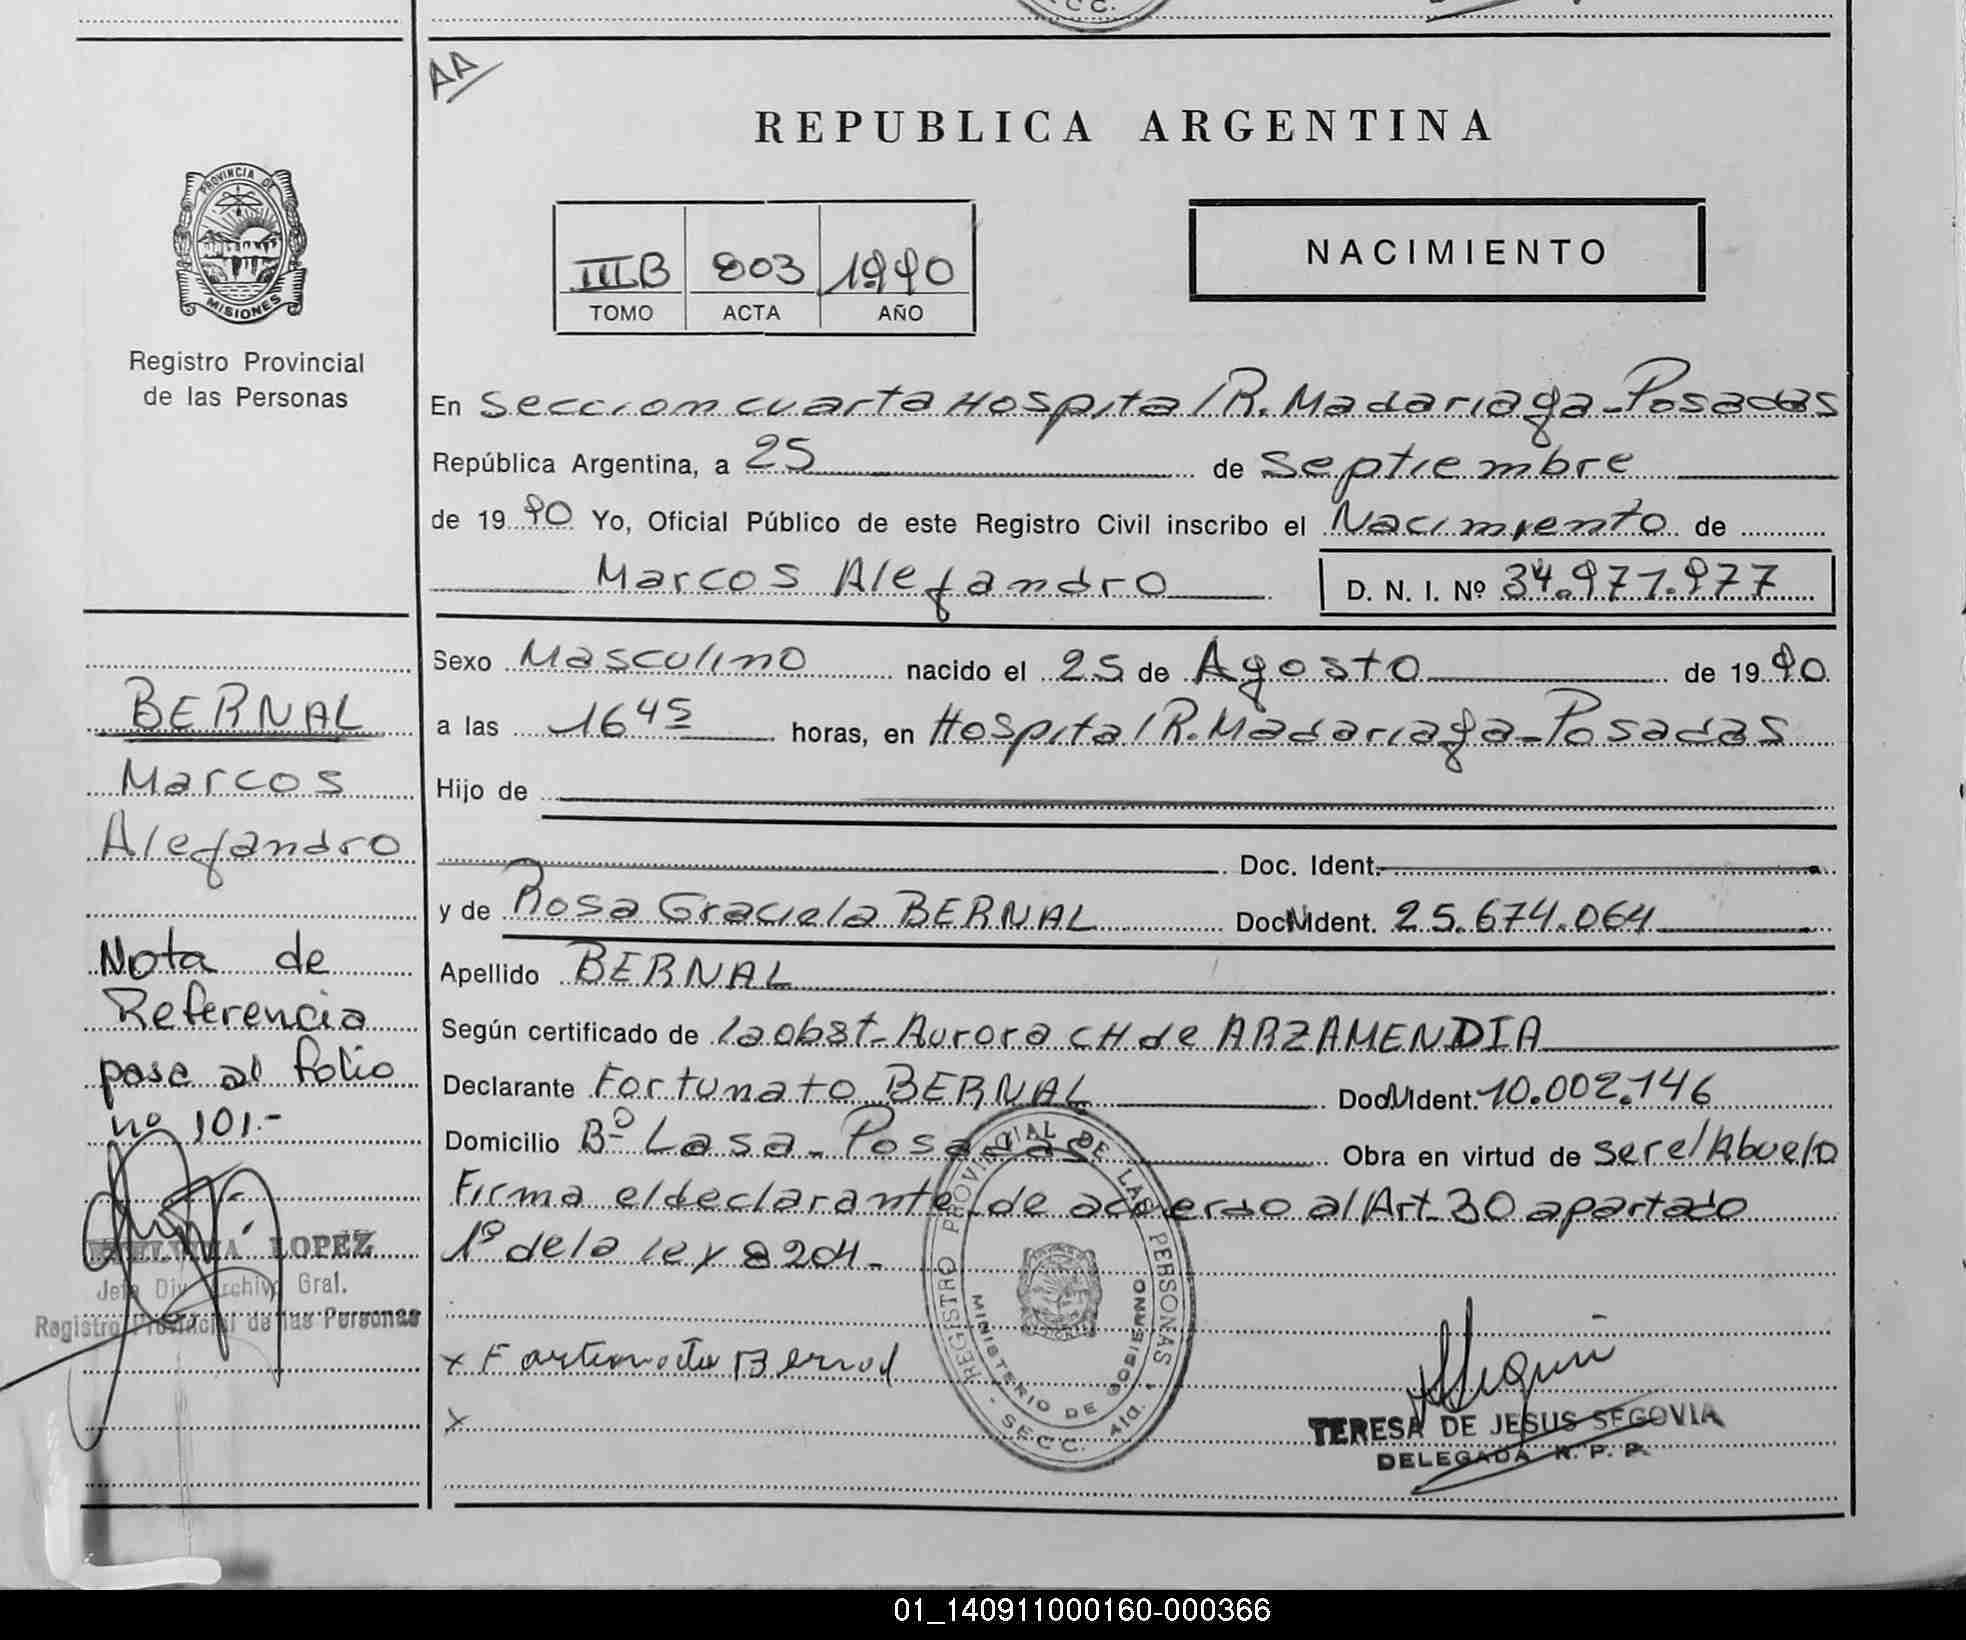 AA
REPUBLICA ARGENTINA
PROVINCIA DE
MISIONES
Registro Provincial
de las Personas
NACIMIENTO
III B 803 1990
TOMO ACTA AÑO
En Seccion cuarta Hospital R. Madariaga - Posadas
República Argentina, a 25 de Septiembre
de 19 90 Yo, Oficial Público de este Registro Civil inscribo el Nacimiento de
Marcos Alejandro D. N. I. Nº 34.971.977
Sexo Masculino nacido el 25 de Agosto de 19 90
a las 16 45 horas, en Hospital R. Madariaga - Posadas
Hijo de
Doc. Ident.
y de Rosa Graciela BERNAL Doc. Ident. 25.674.064
Apellido BERNAL
Según certificado de la obst. Aurora CH de ARZAMENDIA
Declarante Fortunato BERNAL Doc. Ident. 10.002.146
Domicilio Bº Lasa - Posadas Obra en virtud de ser el Abuelo
Firma el declarante de acuerdo al Art. 30 apartado
1º de la ley 8204 -
x Fortunato Bernal
x
REGISTRO PROVINCIAL DE LAS PERSONAS
MINISTERIO DE GOBIERNO
- SECC. 4ta. -
TERESA DE JESUS SEGOVIA
DELEGADA R. P. P.
BERNAL
Marcos
Alejandro
Nota de
Referencia
pase al folio
nº 101.-
LOPEZ
Jefe Div. Archivo Gral.
Registro Provincial de las Personas
01_140911000160-000366